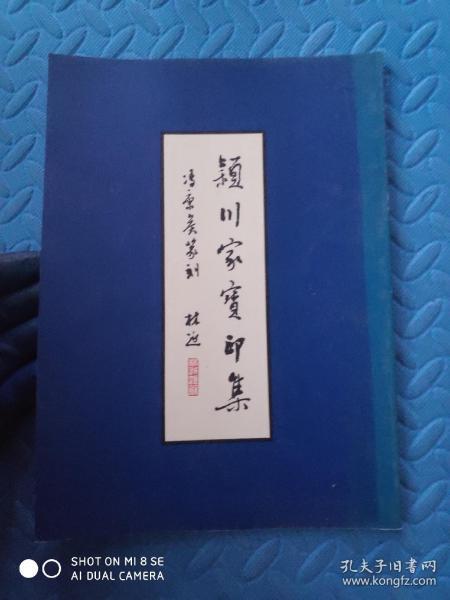 颍川家宝印集
冯康矦篆刻
林近
SHOT ON MI 8 SE
AI DUAL CAMERA
孔夫子旧书网
www.kongfz.com